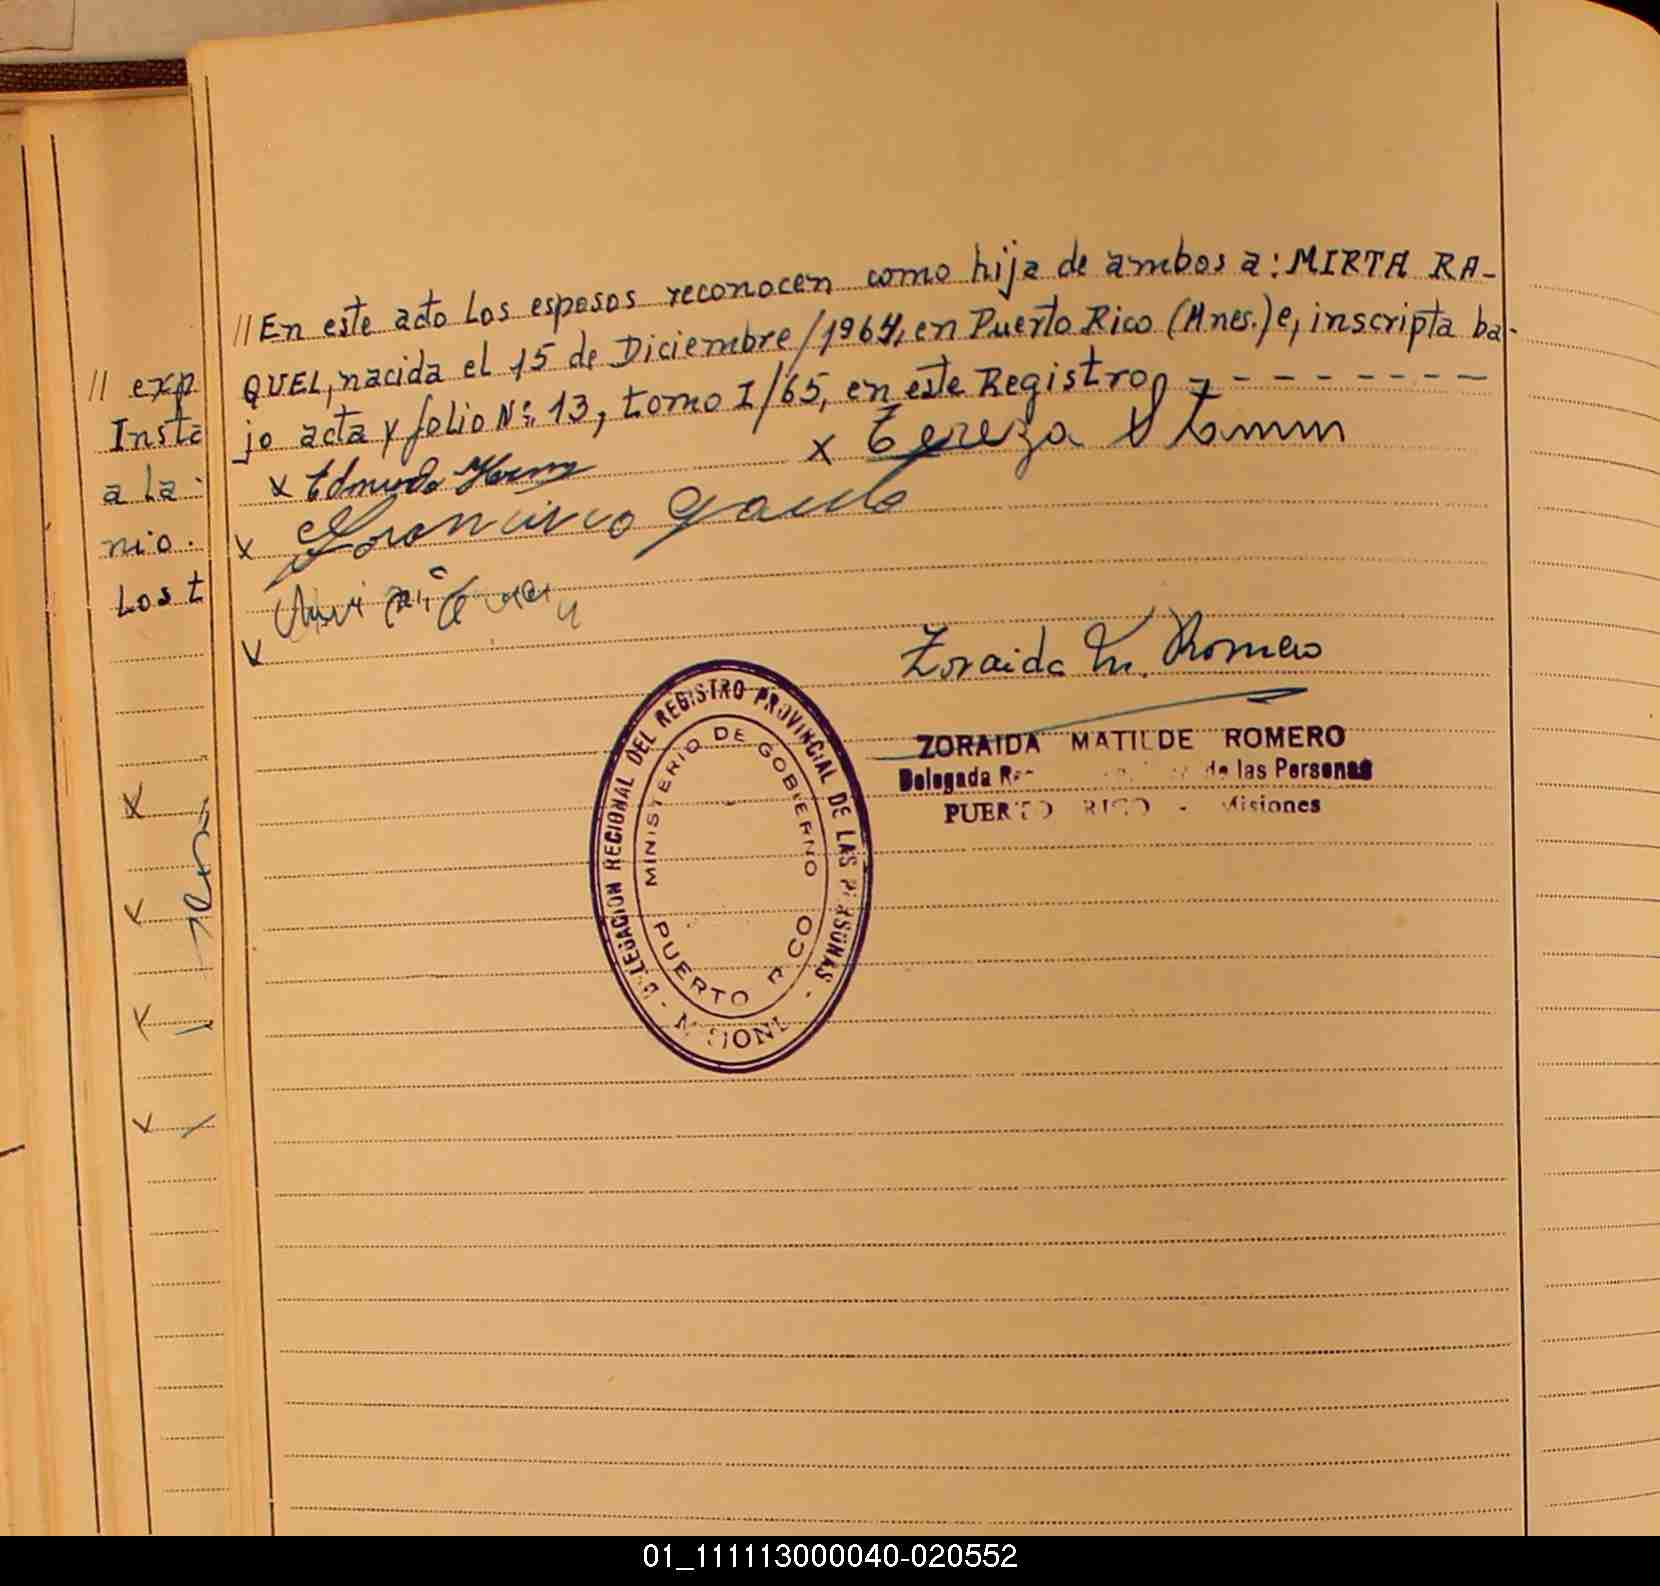 //En este acto Los esposos reconocen como hija de ambos a: MIRTA RA-
QUEL, nacida el 15 de Diciembre/1964, en Puerto Rico (Mnes.) e, inscripta ba-
jo acta y folio Nº: 13, tomo I/65, en este Registro, - - - - - - - -
x Tereza Stamm
x Edmundo
x Francisco
x
Zoraida M. Romero
ZORAIDA MATILDE ROMERO
Delegada de las Personas
PUERTO RICO - Misiones
DELEGACION REGIONAL DEL REGISTRO PROVINCIAL DE LAS PERSONAS
MINISTERIO DE GOBIERNO
PUERTO RICO
- MISIONES -
// exp
Insta
a La
nio.
Los t
x
x
x
x
01_111113000040-020552